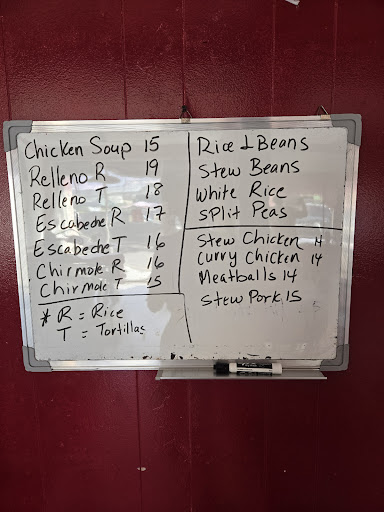 Chicken Soup 15
Relleno R 19
Relleno T 18
Escabeche R 17
Escabeche T 16
Chirmole R 16
Chirmole T 15
* R = Rice
T = Tortillas
Rice & Beans
Stew Beans
White Rice
Split Peas
Stew Chicken 14
Curry Chicken 14
Meatballs 14
Stew Pork 15